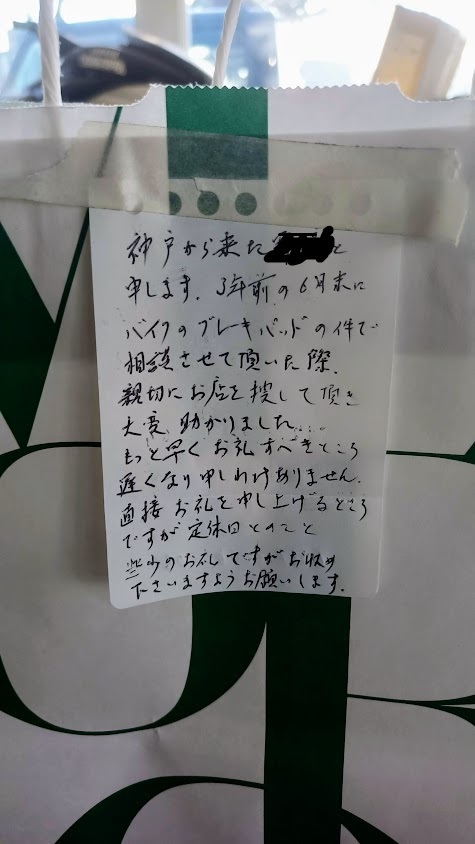 神戸から来た と
申します。3年前の6月末に
バイクのブレーキパッドの件で
相談させて頂いた際、
親切にお店を捜して頂き
大変助かりました...
もっと早くお礼すべきところ
遅くなり申しわけありません。
直接お礼を申し上げるところ
ですが定休日とのこと
些少のお礼ですがお収め
下さいますようお願いします。